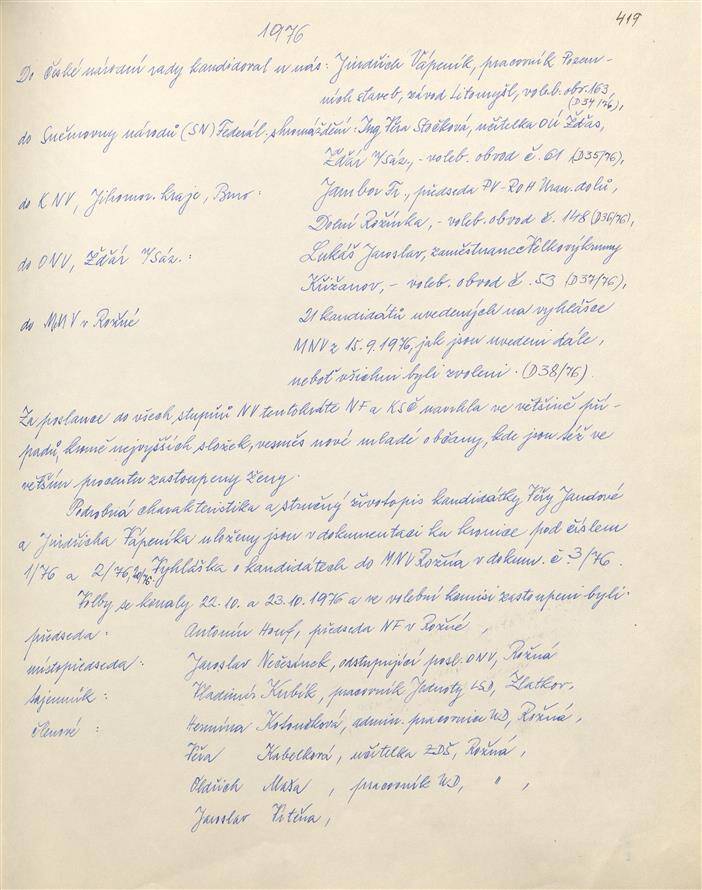 419
1976
Do České národní rady kandidoval u nás: Jindřich Vápeník, pracovník Pozem-
ních staveb, závod Litomyšl, voleb. obv. 163
(D34/76),
do Sněmovny národů (SN) Federál. shromáždění: Ing Věra Stočková, učitelka OÚ Žďas,
Žďár n/Sáz, - voleb. obvod č. 61 (D35/76),
do KNV, Jihomor. kraje, Brno: Jambor Fr., předseda PV-ROH Uran. dolů,
Dolní Rožínka, - voleb. obvod č. 148 (D36/76),
do ONV, Žďár n/Sáz.: Lukáš Jaroslav, zaměstnanec Velkovýkrmny
Křižanov, - voleb. obvod č. 53 (D37/76),
do MNV v Rožné 21 kandidátů uvedených na vyhlášce
MNV z 15.9.1976, jak jsou uvedeni dále,
neboť všichni byli zvoleni. (D38/76)
Za poslance do všech stupňů NV tentokráte NF a KSČ navrhla ve většině pří-
padů, kromě nejvyšších složek, vesměs nové mladé občany, kde jsou též ve
větším procentu zastoupeny ženy.
Podrobná charakteristika a stručný životopis kandidátky Věry Jandové
a Jindřicha Vápeníka uloženy jsou v dokumentaci ku kronice pod číslem
1/76 a 2/76, Vyhláška o kandidátech do MNV Rožná v dokum. č. 3/76.
Volby se konaly 22.10. a 23.10.1976 a ve volební komisi zastoupeni byli:
předseda: Antonín Houf, předseda NF v Rožné,
místopředseda: Jaroslav Nečesánek, odstupující posl. ONV, Rožná
tajemník: Vladimír Kubík, pracovník Jednoty LSD, Zlatkov,
členové: Hermína Kotoučková, admin. pracovnice UD, Rožná,
Věra Kabelková, učitelka ZDŠ, Rožná,
Oldřich Maša, pracovník UD, " ,
Jaroslav Vítěna,